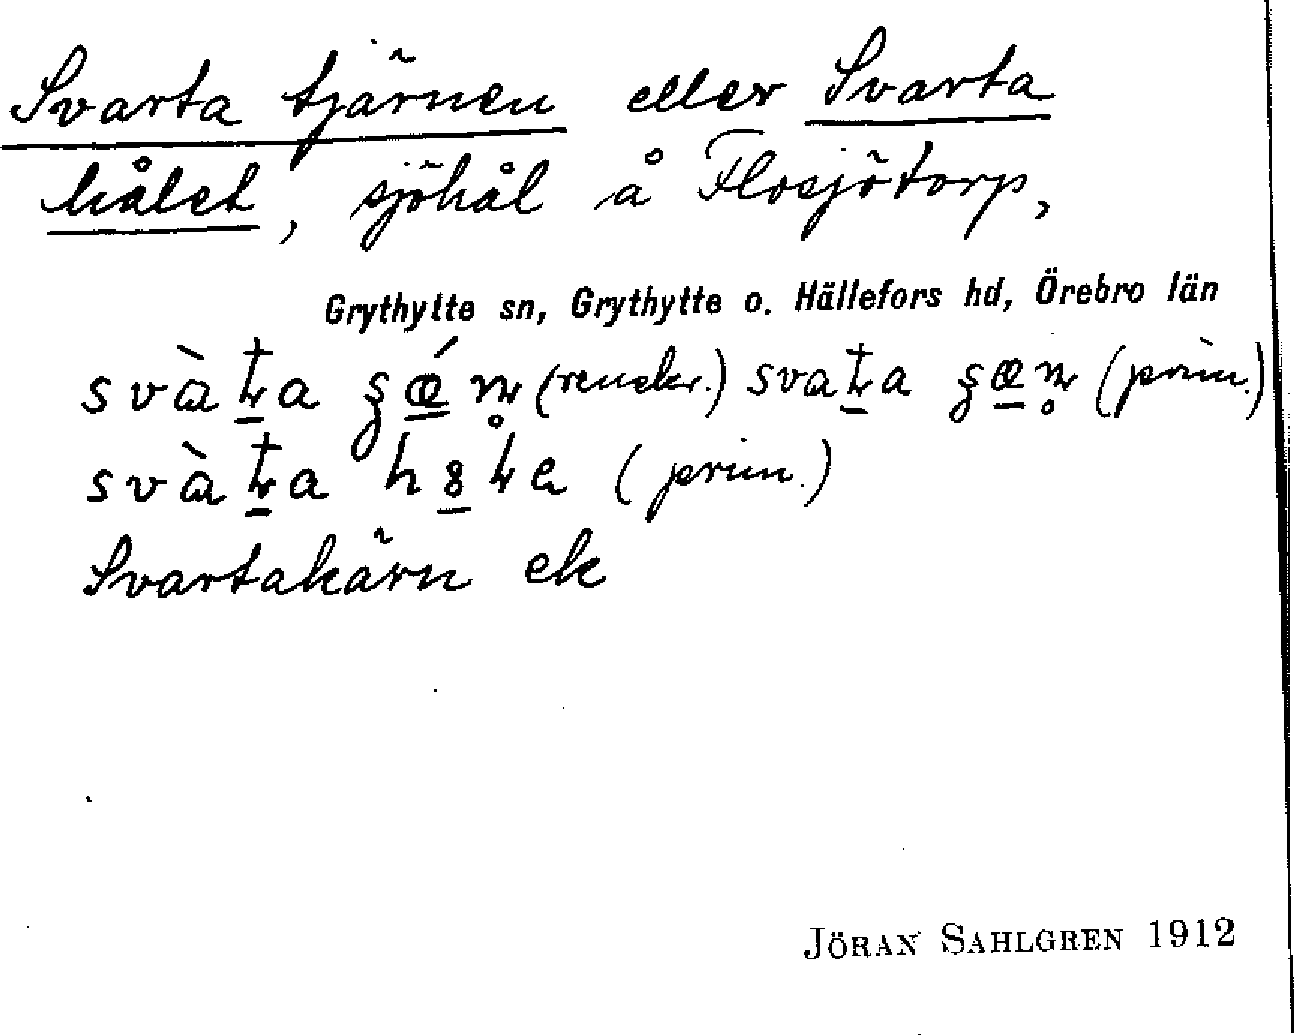 Svarta tjärnen eller Svarta
hålet, sjöhål å Flosjötorp,
Grythytte sn, Grythytte o. Hällefors hd, Örebro län
(renskr.) (prim.)
(prim.)
Svartakärn ek
JÖRAN SAHLGREN 1912